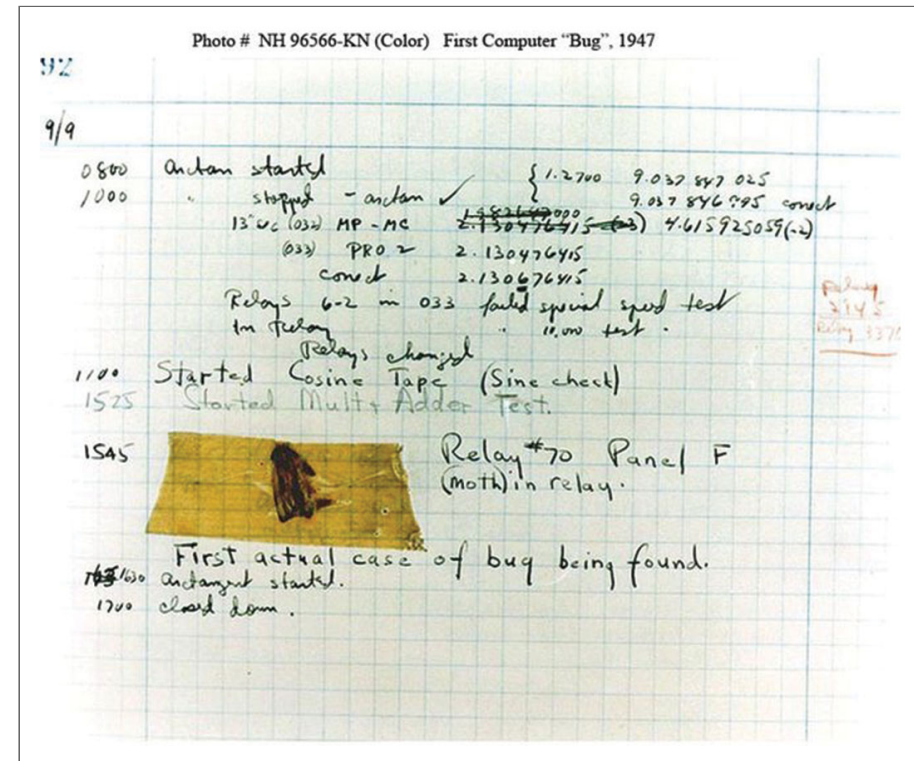 Photo # NH 96566-KN (Color) First Computer “Bug”, 1947
92
9/9
0800 arctan started { 1.2700 9.037 847 025
1000 " stopped - arctan ✓ 9.037 846 995 correct
13"uc (032) MP - MC 2.130476415 (-3) 4.615925059(-2)
(033) PRO 2 2.130476415
correct 2.130676415
Relays 6-2 in 033 failed special speed test
In Relay " 10.000 test .
Relay
2145
Relay 3370
Relays changed
1100 Started Cosine Tape (Sine check)
1525 Started Mult+ Adder Test.
1545 Relay #70 Panel F
(moth) in relay.
First actual case of bug being found.
1630 arctangent started.
1700 closed down.